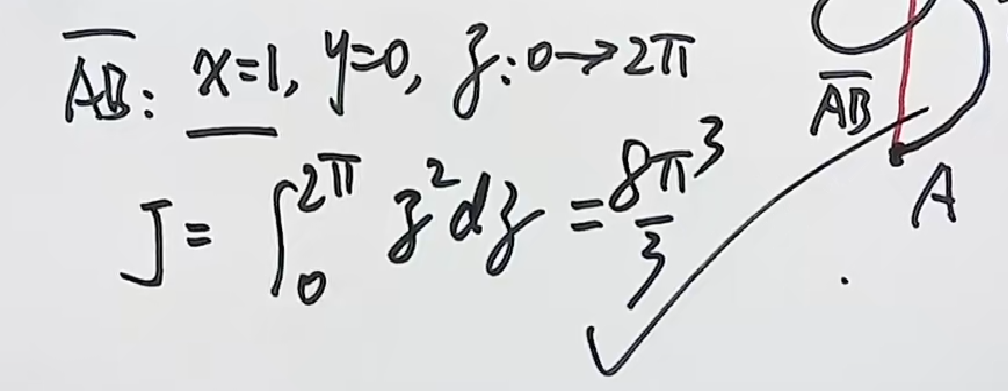 A̅B̅: x=1, y=0, z:0→2π
J = ∫₀^{2π} z²dz = 8π³/3
A̅B̅
A